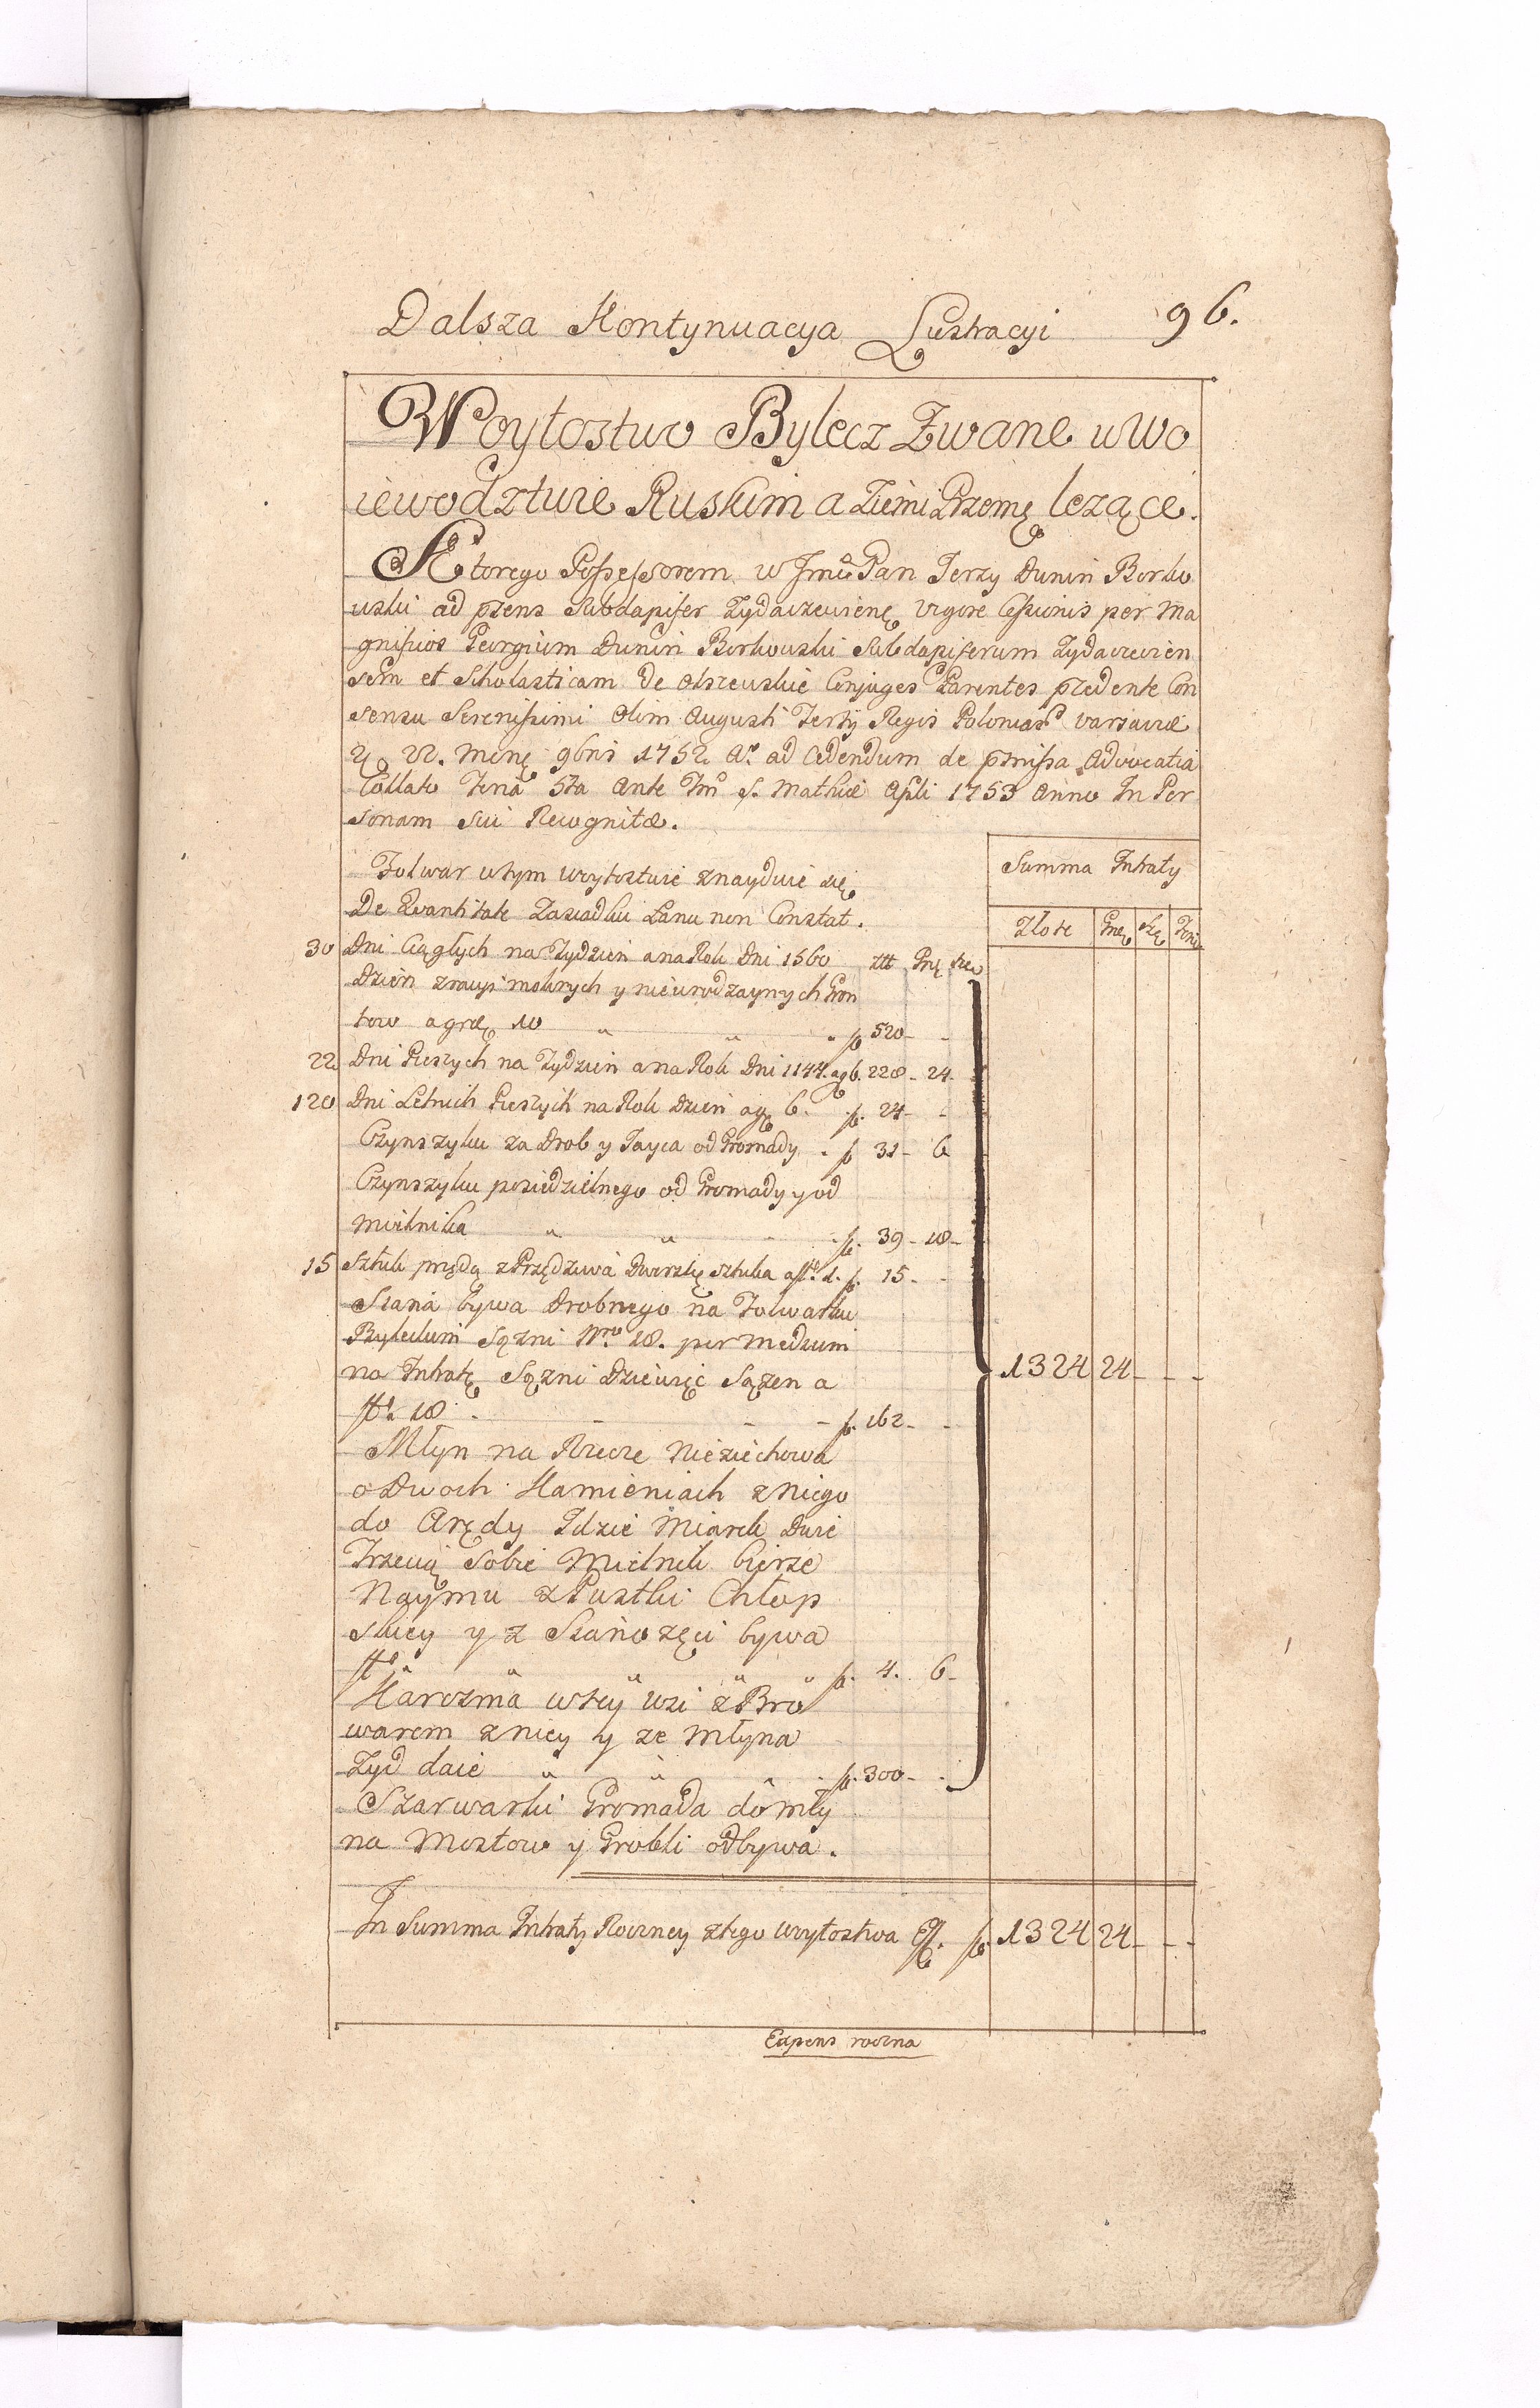 Dalsza Kontynuacya Lustracyi 96.
Woytostwo Bylecz Zwane w Wo
iewodztwie Ruskim a Ziemi Przemę lezące.
Ktorego Possessorem w Jmć Pan Jerzy Dunin Borko
wski ad pzens Subdapifer Zydaczewienę vigore Cessionis per Ma
gnificos Georgium Dunin Borkowski Subdapiferum Zydaczewien
sem et Scholasticam De Olszewskie Conjuges Parentes pzedente Con
sensu Serenissimi Olim Augusti Tertij Regis Poloniar Varsaviæ
22. Menę 9bris 1752. Ao ad Cedendum de pmissa Advocatia
Collato Feria 5ta Ante Fm S. Mathiæ Apli 1753 Anno In Per
sonam Sui Recognitæ.
Summa Intraty
Folwar wtym woytostwie znayduie się
De Quantitate Zasiadku Lanu non Constat.
Złote Grę Szę
30 Dni Ciągłych na Tydzien a na Rok Dni 1560 złł Grę Szę
Dzien zracyi mokrych y nieurodzaynych Gron
tow a grę 10 " " f. 520 - -
22 Dni Pieszych na Tydzien a na Rok Dni 1144. ag 6. 228 - 24 -
120 Dni Letnich Pieszych na Rok Dzien ag 6. f. 24 - -
Czynszyku za Drob y Jayca od Gromady - f. 31 - 6
Czynszyku posiedzielnego od Gromady y od
Mielnika " " f. 39 - 18 -
15 Sztuk przędą z Przędziwa Dworskię sztuka a fł. 1. f. 15 - -
Siana bywa Drobnego na Folwarku
Byleckim Sązni Nro 18. per medium
na Intratę Sązni Dziewięć Sązen a
fł. 18 - - - f. 162 - -
1324 24 - - -
Młyn na Rzece Nieziechowa
o Dwoch Kamieniach z niego
do Arędy Idzie Miarek Dwie
Trzecią Sobie Mielnik bierze
Naymu z Pustki Chłop
skiey y z Sianozęci bywa
fł. " " " " " f. 4. 6 -
Karczma wtey wsi z Bro
warem z niey y ze Młyna
Zyd daie " " " f. 300 - -
Szarwarki Gromada do Mły
na Mostow y Grobli odbywa.
In Summa Intraty Roczney ztego Woytostwa f. 1324 24 - - -
Expens roczna